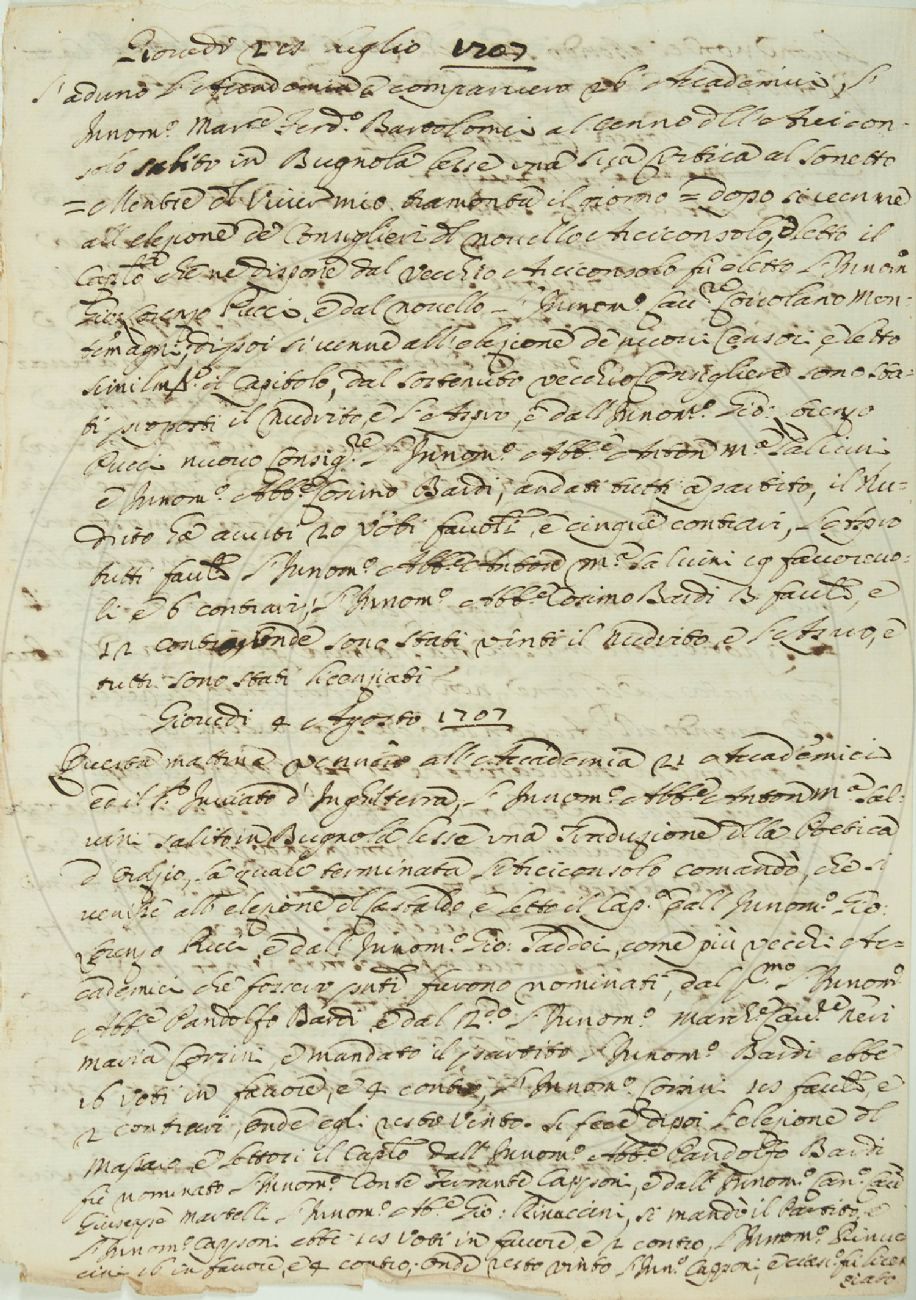 Giovedì 21 luglio 1707
S'adunò l'Accademia e comparvero 26 Accademici, l'
Innom.º March.e Ferd.º Bartolomei al cenno dell'Arcicon-
solo salito in Bugnola lesse una sua Critica al sonetto
= Mentre del viver mio tramonta il giorno = dopo si venne
all'elezione de' Consiglieri del novello Arciconsolo, e letto il
Caplo che ne dispone dal vecchio Arciconsolo fu eletto l'Innom.
Gio: Lorenzo Pucci, e dal novello l'Innom.º Cav.re Coriolano Mon-
temagni, di poi si venne all'elezione de nuovi Censori, e letto
similm.e il Capitolo, dal sostenuto vecchio Consigliere sono sta-
ti proposti il Nudrito, e l'Aspro, e dall'Innom.º Gio: Lorenzo
Pucci nuovo Consig.re l'Innom.º Abb.e Anton M.a Salvini
e Innom.º Abb.e Cosimo Bardi, andati tutti a partito, il Nu-
drito ha avuti 20 voti favoli, e cinque contrari, l'Aspro
tutti favoli, l'Innom.º Abb.e Anton M.a Salvini 19 favorevo-
li e 6 contrari, l'Innom.º Abb.e Cosimo Bardi 13 favoli, e
12 contri, onde sono stati vinti il Nudrito, e l'Aspro, e
tutti sono stati licenziati
Giovedì 4 Agosto 1707
Questa mattina vennero all'Accademia 21 Accademici
ed il Inviato d'Inghilterra, l'Innom.º Abb.e Anton M.a Sal-
vini salito in Bugnola lesse una Traduzione della Poetica
d'Orazio, la quale terminata l'Arciconsolo comandò, che si
venisse all'elezione del Castaldo, e letto il Cap.º dall'Innom.º Gio:
Lorenzo Pucci, e dall'Innom.º Gio: Taddei, come più vecchi Ac-
cademici che fossero pnti furono nominati, dal p.mo l'Innom.º
Abb.e Pandolfo Bardi, e dal 2.do l'Innom.º March.e Cav.re Neri
Maria Corsini, e mandato il partito l'Innom.º Bardi ebbe
16 voti in favore, e 4 contro, l'Innom.º Corsini 18 favoli, e
2 contrari, onde egli restò vinto. Si fece dipoi l'elezione del
Massaio e lettosi il Caplo dall'Innom.º Abb.e Pandolfo Bardi
fu nominato l'Innom.º Conte Ferrante Capponi, e dall'Innom.º Can.co Cav.
Giuseppe Martelli l'Innom.º Ab.e Gio: Rinuccini, si mandò il Partito, e
l'Innom.º Capponi ebbe 18 voti in favore e 2 contro, l'Innom.º Rinuc-
cini 16 in favore, e 4 contro, onde restò vinto l'Inn.º Capponi, e ciasc.º fu licen-
ziato